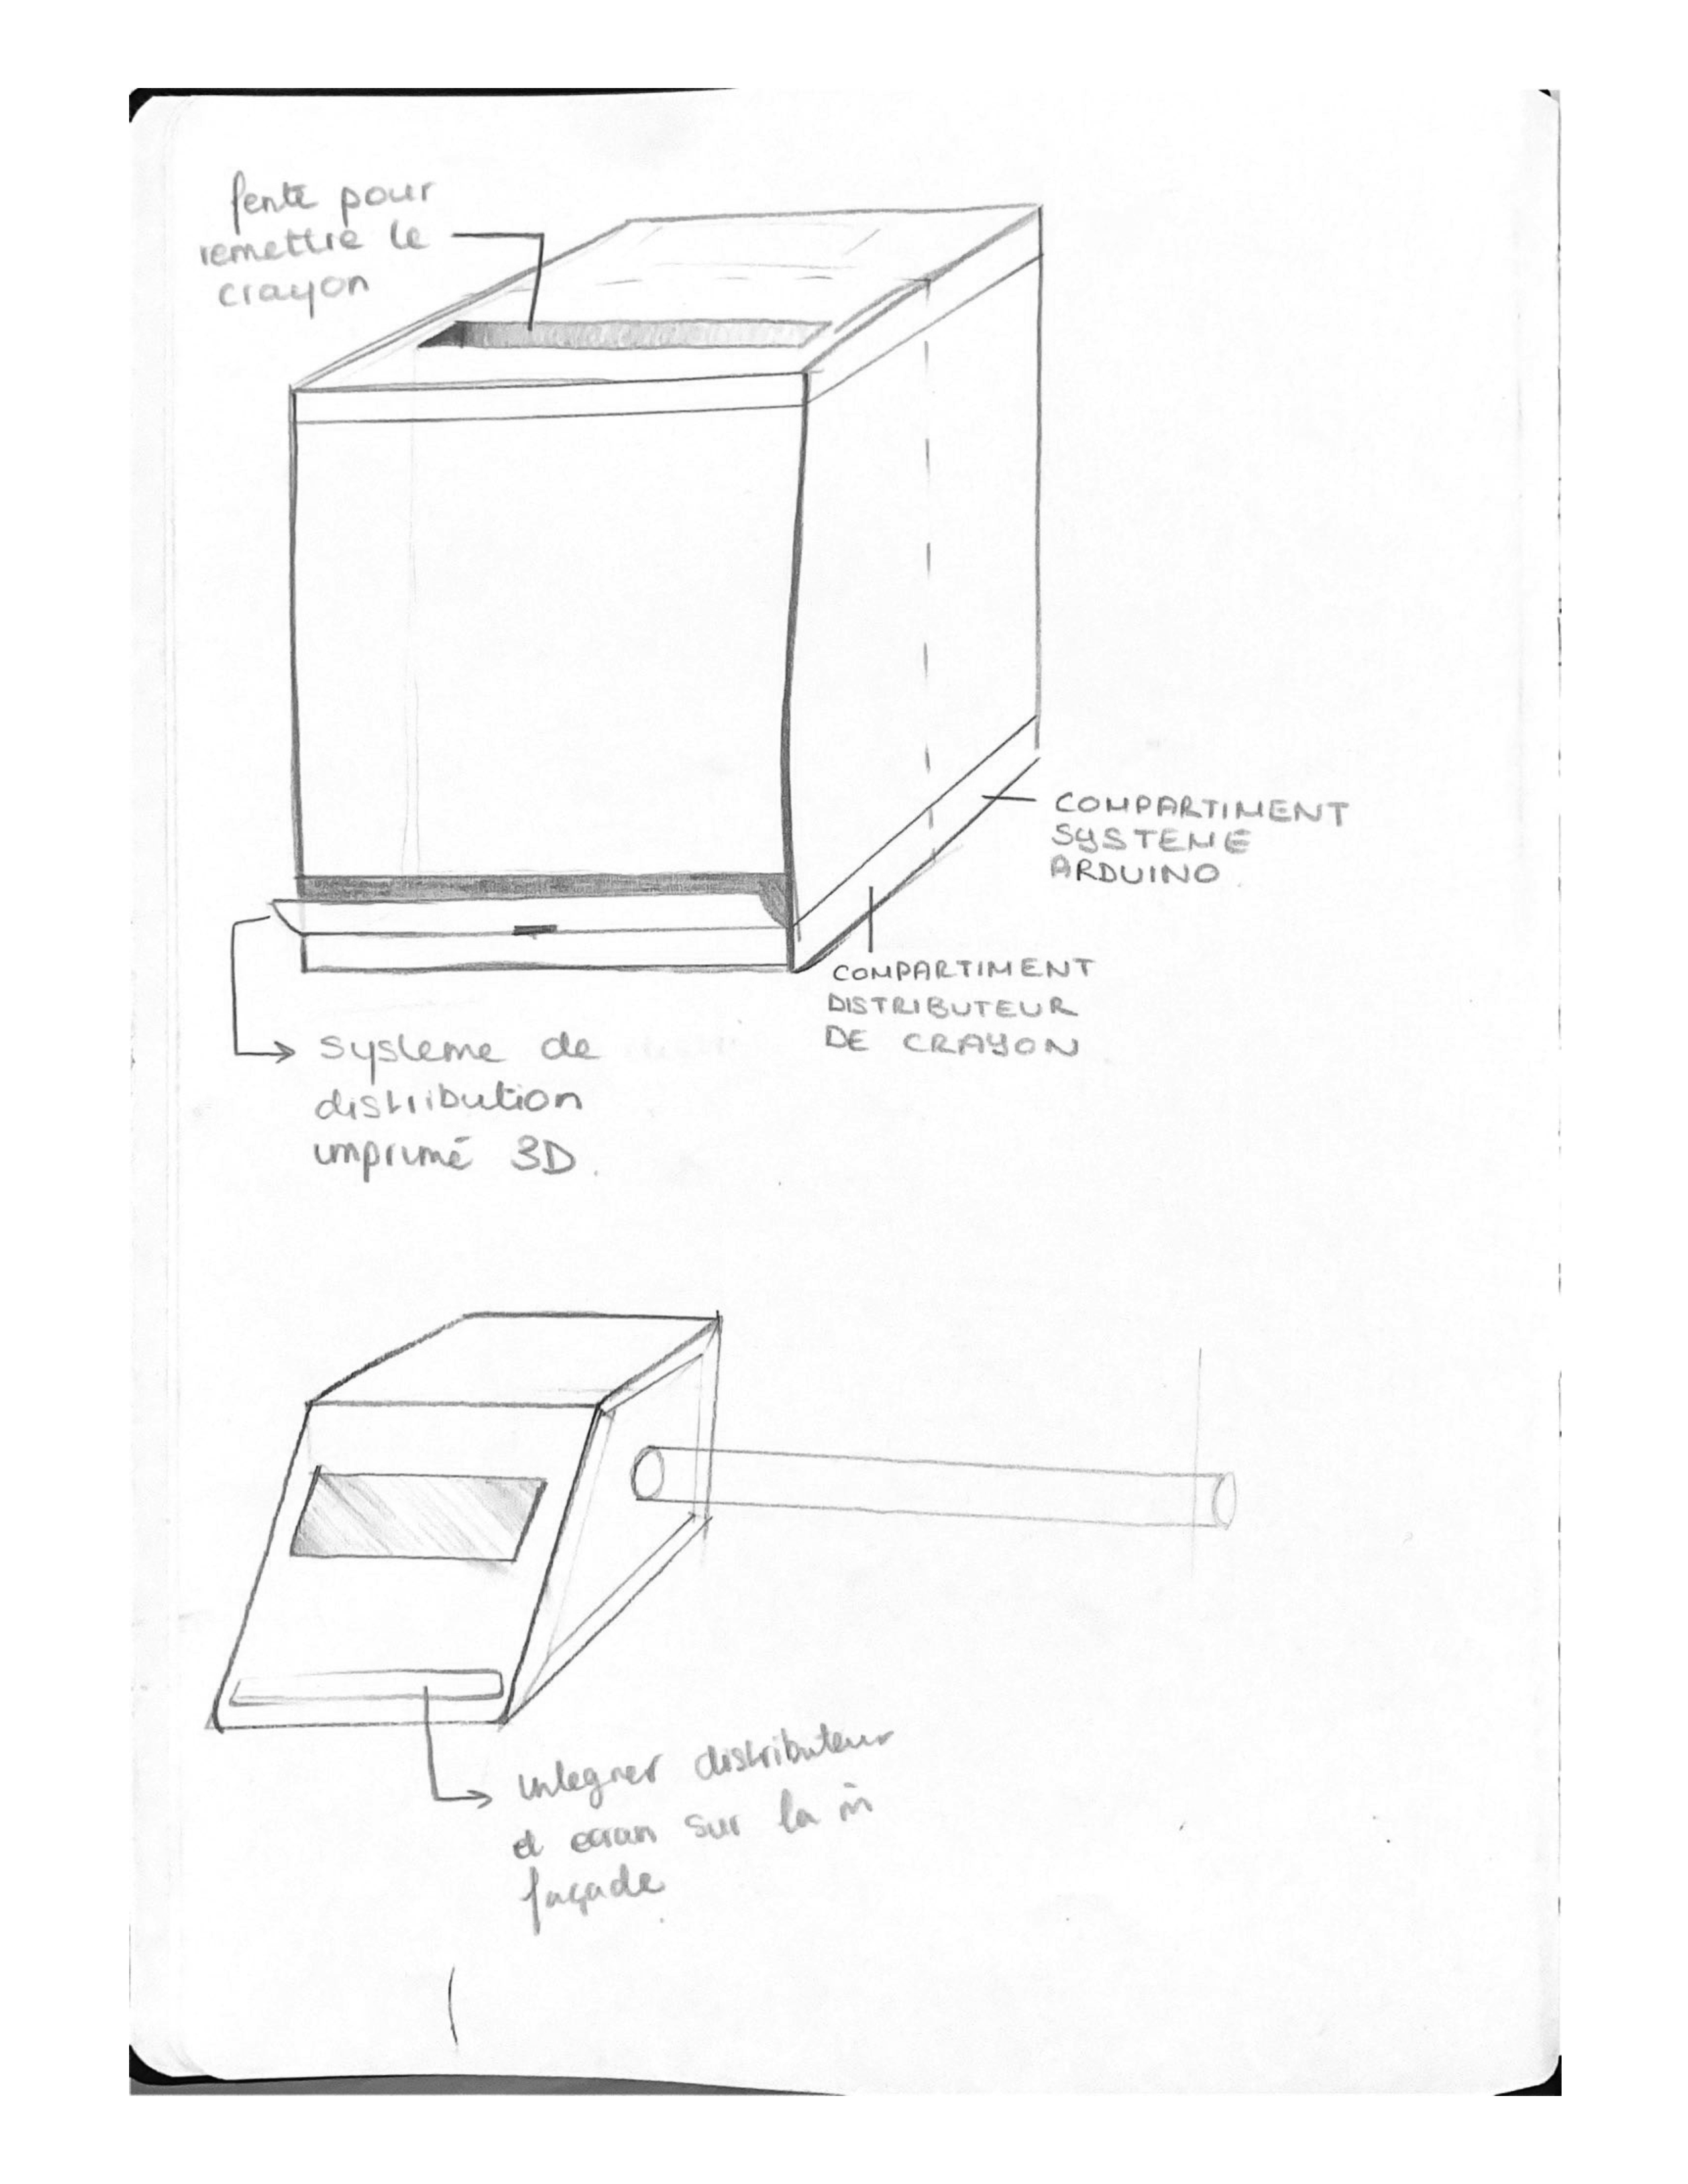 fente pour
remettre le
crayon
COMPARTIMENT
SYSTEME
ARDUINO
COMPARTIMENT
DISTRIBUTEUR
DE CRAYON
systeme de
distribution
imprimé 3D.
integrer distributeur
et ecran sur la m̂
façade